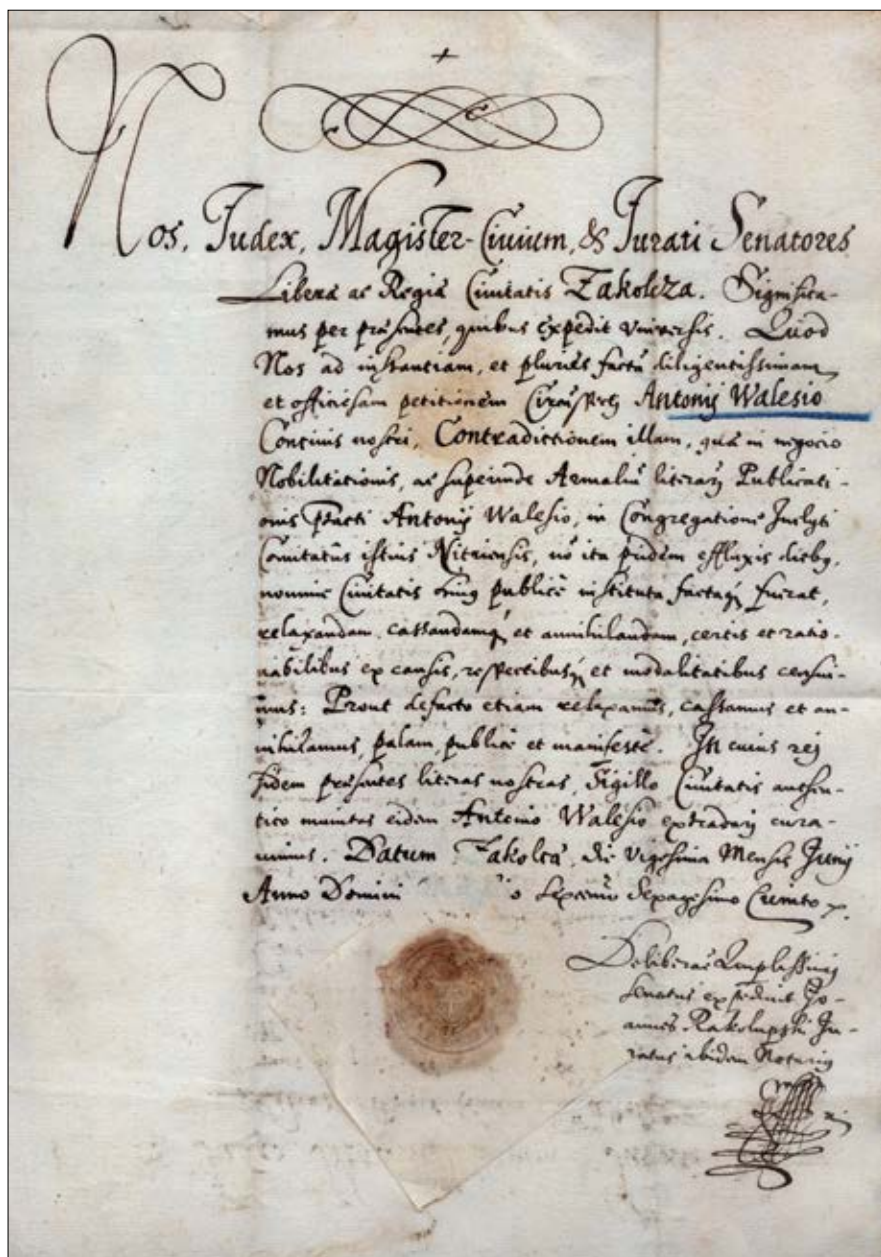 Nos, Judex, Magister-Civium, & Jurati Senatores
Liberæ ac Regiæ Civitatis Zakolcza. Significa-
mus per præsentes, quibus expedit universis. Quod
Nos ad instantiam, et pluries factã diligentissimam
et officiosam petitionem Circũspecti Antonij Walesio
Concivis nostri, Contradictionem illam, quæ in negocio
Nobilitationis, ac superinde Armaliũ literarũ Publicati-
onis Antonij Walesio, in Congregatione Inclyti
Comitatûs istius Nitriensis, nõ ita pridem effluxis diebq,
nomine Civitatis publicè instituta factaq fuerat,
relaxandam, cassandamq et annihilandam, certis et ratio-
nabilibus ex causis, respectibusq et modalitatibus censui-
mus: Prout defacto etiam relaxamus, cassamus et an-
nihilamus, palam, publicè et manifestè. In cuius rej
fidem præsentes literas nostras, Sigillo Civitatis authen-
tico munitas eidem Antonio Walesio extradarj cura-
vimus. Datum Zakolcæ, die Vigesima Mensis Junij
Anno Domini
Senatus expedivit Jo-
annes Rakolupski Ju-
ratus ibidem Notariq